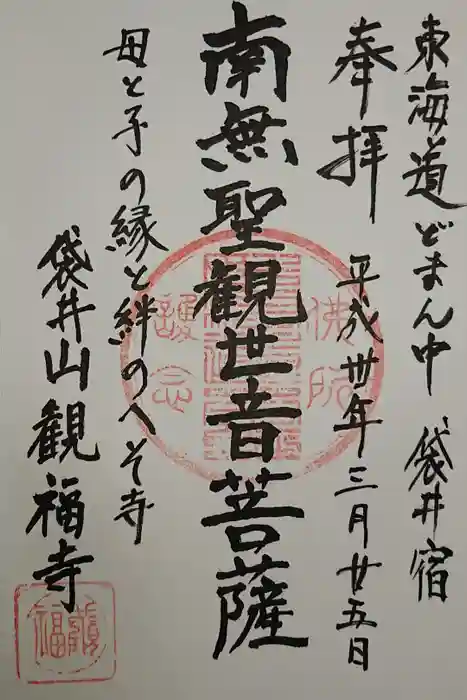 東海道どまん中 袋井宿
奉拝 平成卅年三月廿五日
南無聖観世音菩薩
母と子の縁と絆のへそ寺
袋井山観福寺